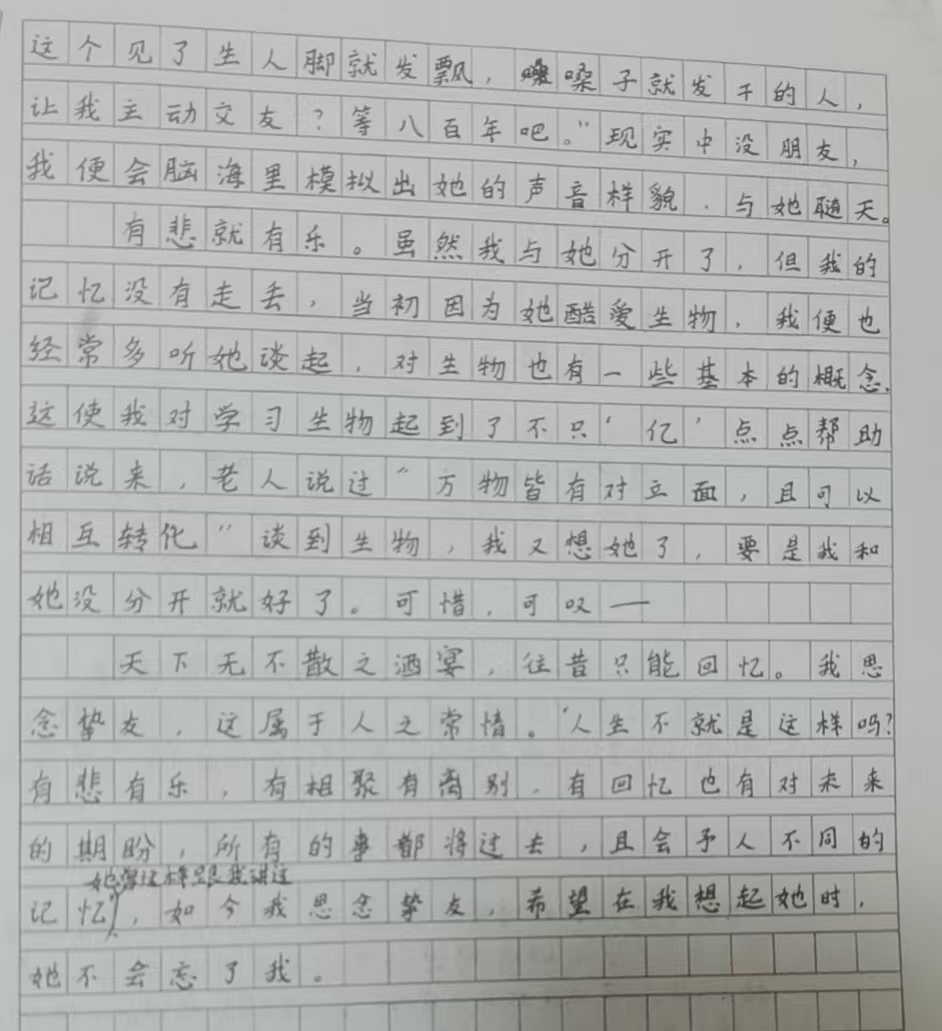 这个见了生人脚就发飘，嗓子就发干的人，
让我主动交友？等八百年吧。”现实中没朋友，
我便会脑海里模拟出她的声音样貌，与她聊天。
有悲就有乐。虽然我与她分开了，但我的
记忆没有走丢，当初因为她酷爱生物，我便也
经常多听她谈起，对生物也有一些基本的概念，
这使我对学习生物起到了不只‘亿’点点帮助
话说来，老人说过“万物皆有对立面，且可以
相互转化”谈到生物，我又想她了，要是我和
她没分开就好了。可惜，可叹——
天下无不散之酒宴，往昔只能回忆。我思
念挚友，这属于人之常情。“人生不就是这样吗？
有悲有乐，有相聚有离别，有回忆也有对未来
的期盼，所有的事都将过去，且会予人不同的
她曾这样跟我讲过
记忆”，如今我思念挚友，希望在我想起她时，
她不会忘了我。